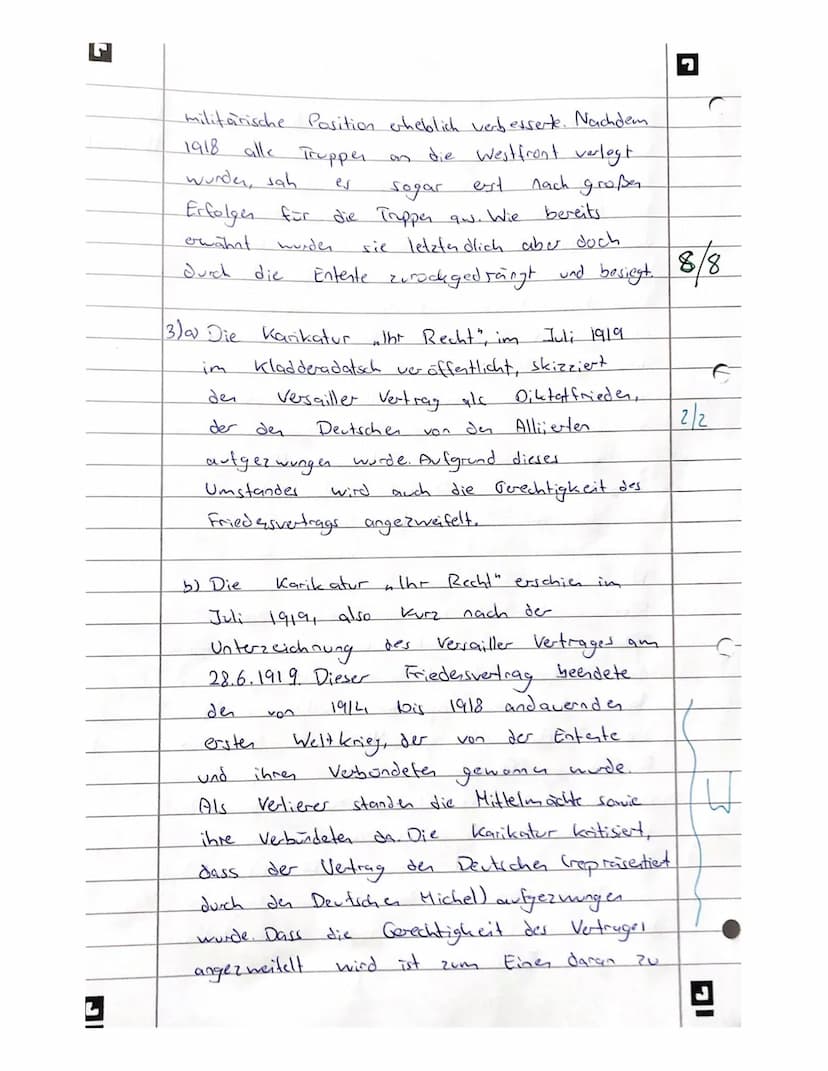 militärische Position erheblich verbesserte. Nachdem
1918 alle Truppen an die Westfront verlegt
wurden, sah es sogar erst nach großen
Erfolgen für die Truppen aus. Wie bereits
erwähnt wurden sie letztendlich aber doch
durch die Entente zurückgedrängt und besiegt.
8/8
3)a) Die Karikatur „Ihr Recht", im Juli 1919
im Kladderadatsch veröffentlicht, skizziert
den Versailler Vertrag als Diktatfrieden,
der den Deutschen von den Alliierten
2/2
aufgezwungen wurde. Aufgrund dieses
Umstandes wird auch die Gerechtigkeit des
Friedensvertrags angezweifelt.
b) Die Karikatur „Ihr Recht" erschien im
Juli 1919, also kurz nach der
Unterzeichnung des Versailler Vertrages am
28.6.1919. Dieser Friedensvertrag beendete
den von 1914 bis 1918 andauernden
ersten Weltkrieg, der von der Entente
und ihren Verbündeten gewonnen wurde.
Als Verlierer standen die Mittelmächte sowie
W
ihre Verbündeten da. Die Karikatur kritisiert,
dass der Vertrag den Deutschen (repräsentiert
durch den Deutschen Michel) aufgezwungen
wurde. Dass die Gerechtigkeit des Vertrages
angezweifelt wird ist zum Einen daran zu